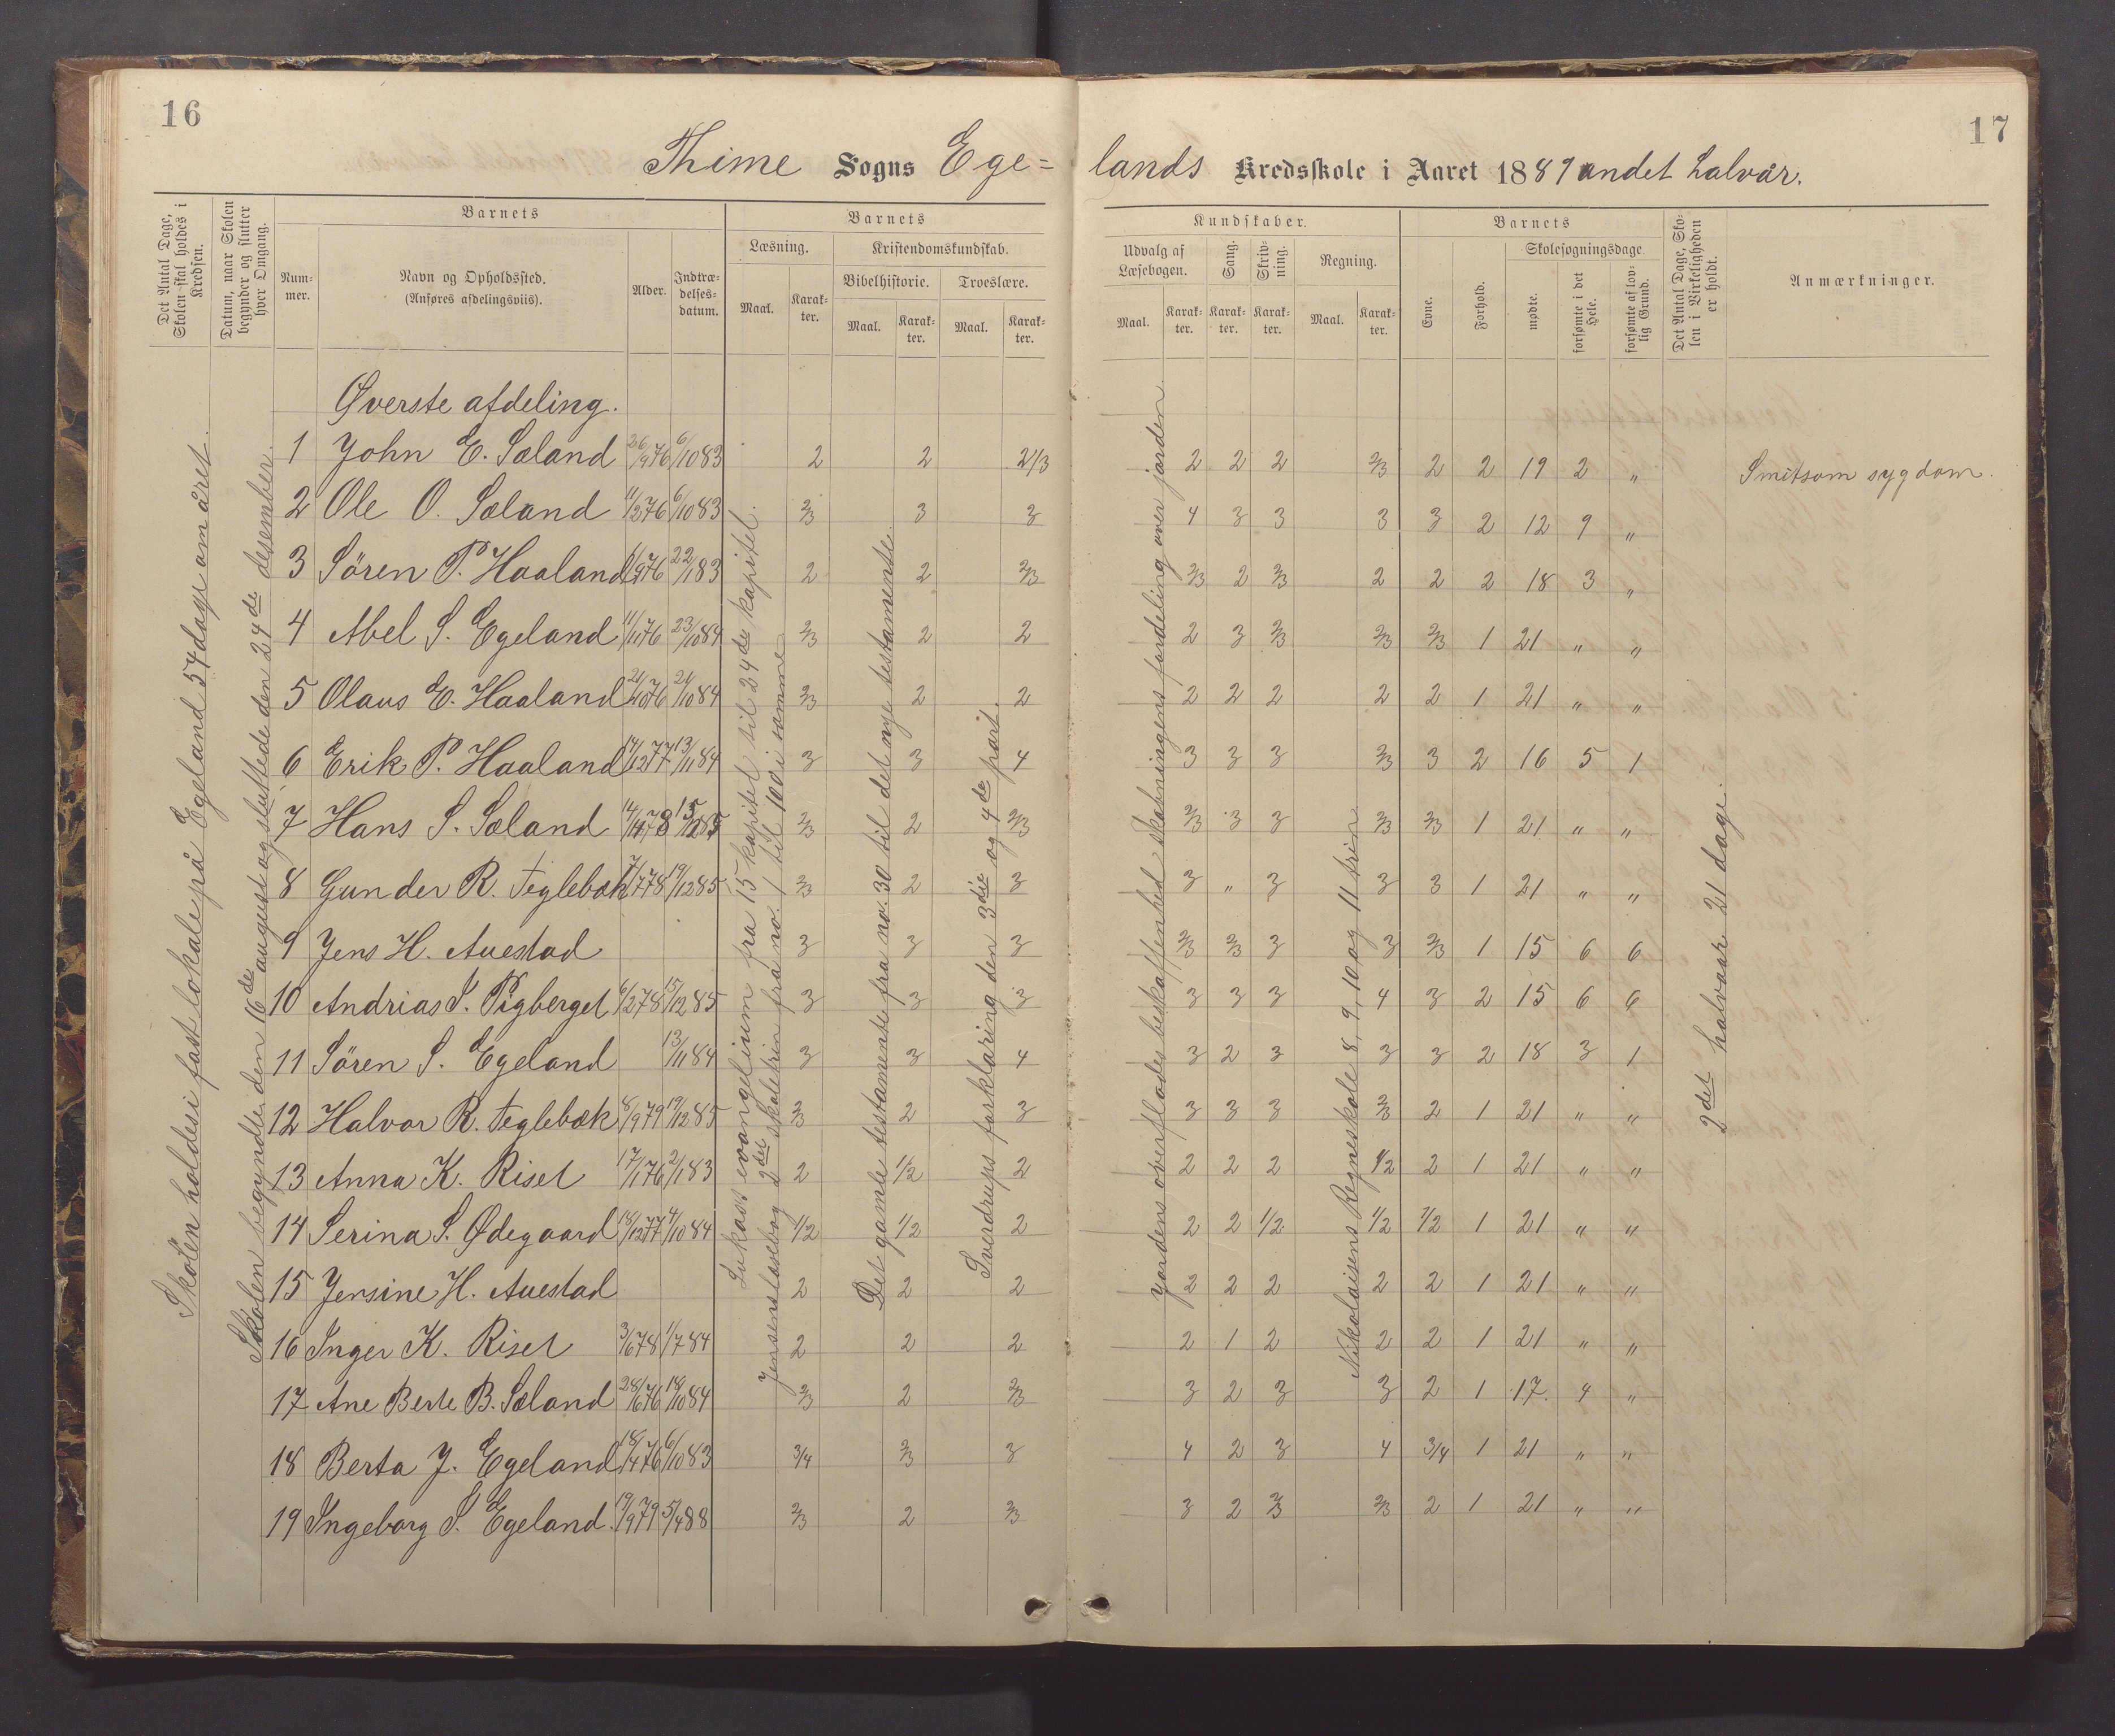 16
17
Thime Sogns Ege=lands Kredsskole i Aaret 1889 andet halvår.
Det Antal Dage, Skolen skal holdes i Kredsen.
Datum, naar Skolen begynder og slutter hver Omgang.
Barnets
Nummer.
Navn og Opholdssted. (Anføres afdelingsviis).
Alder.
Indtrædelsesdatum.
Barnets
Læsning.
Kristendomskundskab.
Bibelhistorie.
Troeslære.
Maal. Karakter. Maal. Karakter. Maal. Karakter.
Kundskaber.
Udvalg af Læsebogen.
Sang.
Skrivning.
Regning.
Maal. Karakter. Karakter. Karakter. Maal. Karakter.
Barnets
Evne.
Forhold.
Skolesøgningsdage
mødte.
forsømte i det Hele.
forsømte af lovlig Grund.
Det Antal Dage, Skolen i Virkeligheden er holdt.
Anmærkninger.
Skolen holdes i fast lokale på Egeland 54 dage om året.
Skolen begyndte den 16de august og sluttede den 24de desember.
Lukass evangelium fra 15 kapitel til 24de kapitel.
Jensens læsebog 2det skoletrin fra no. 1 til 100 i samme
Det gamle testamente fra no. 30 til det nye testamente.
Sverdrups forklaring den 3die og 4de part.
Jordens overflades beskaffenhed
Nikolaisens Regneskole 8, 9, 10 og 11 trin
2det halvaar 21 dage.
Øverste afdeling.
1 John E. Sæland 26/9 76 6/10 83 2 2 2/3 2 2 2 2/3 2 2 19 2 „ Smitsom sygdom.
2 Ole O. Sæland 11/2 76 6/10 83 2/3 3 3 4 3 3 3 3 2 12 9 „
3 Sören P. Haaland 22/1 83 2 2 2/3 2/3 2 2/3 2 2 2 18 3 „
4 Abel S. Egeland 23/10 84 2/3 2 2 2 3 2/3 2/3 2/3 1 21 „ „
5 Olaus E. Haaland 21/10 76 21/10 84 2/3 2 2 2 2 2 2 2 1 21 „ „
6 Erik P. Haaland 14/12 77 13/11 84 3 3 4 3 3 3 2/3 3 2 16 5 1
7 Hans S. Sæland 2/3 2 2/3 2/3 3 3 2/3 2/3 1 21 „ „
8 Gunder R. Teglebæk 7/7 78 19/12 85 2/3 2 3 3 „ 3 3 3 1 21 „ „
9 Jens H. Auestad 3 3 3 2/3 2/3 3 3 2/3 1 15 6 6
10 Andrias S. Pigberget 6/2 78 15/12 85 3 3 3 3 3 3 4 3 2 15 6 6
11 Sören S. Egeland 13/11 84 3 3 4 3 2 3 3 3 2 18 3 1
12 Halvor R. Teglebæk 8/9 79 19/12 85 2/3 2 3 3 3 3 2/3 2 1 21 „ „
13 Anna K. Riset 17/1 76 2/1 83 2 1/2 2 2 2 2 1/2 2 1 21 „ „
14 Serina S. Ødegaard 18/12 77 4/10 84 1/2 1/2 2 2 2 1/2 1/2 1/2 1 21 „ „
15 Jensine H. Auestad 2 2 2 2 2 2 2 2 1 21 „ „
16 Inger K. Riset 3/6 78 1/7 84 2 2 2 2 1 2 2 2 1 21 „ „
17 Ane Berte B. Sæland 28/6 76 18/10 84 2/3 2 2/3 3 2 3 3 2 1 17 4 „
18 Berta J. Egeland 18/4 76 6/10 83 3/4 2/3 3 4 2 3 4 3/4 1 21 „ „
19 Ingeborg S. Egeland. 19/9 79 5/4 88 2/3 2 2/3 3 2 2/3 2/3 2 1 21 „ „